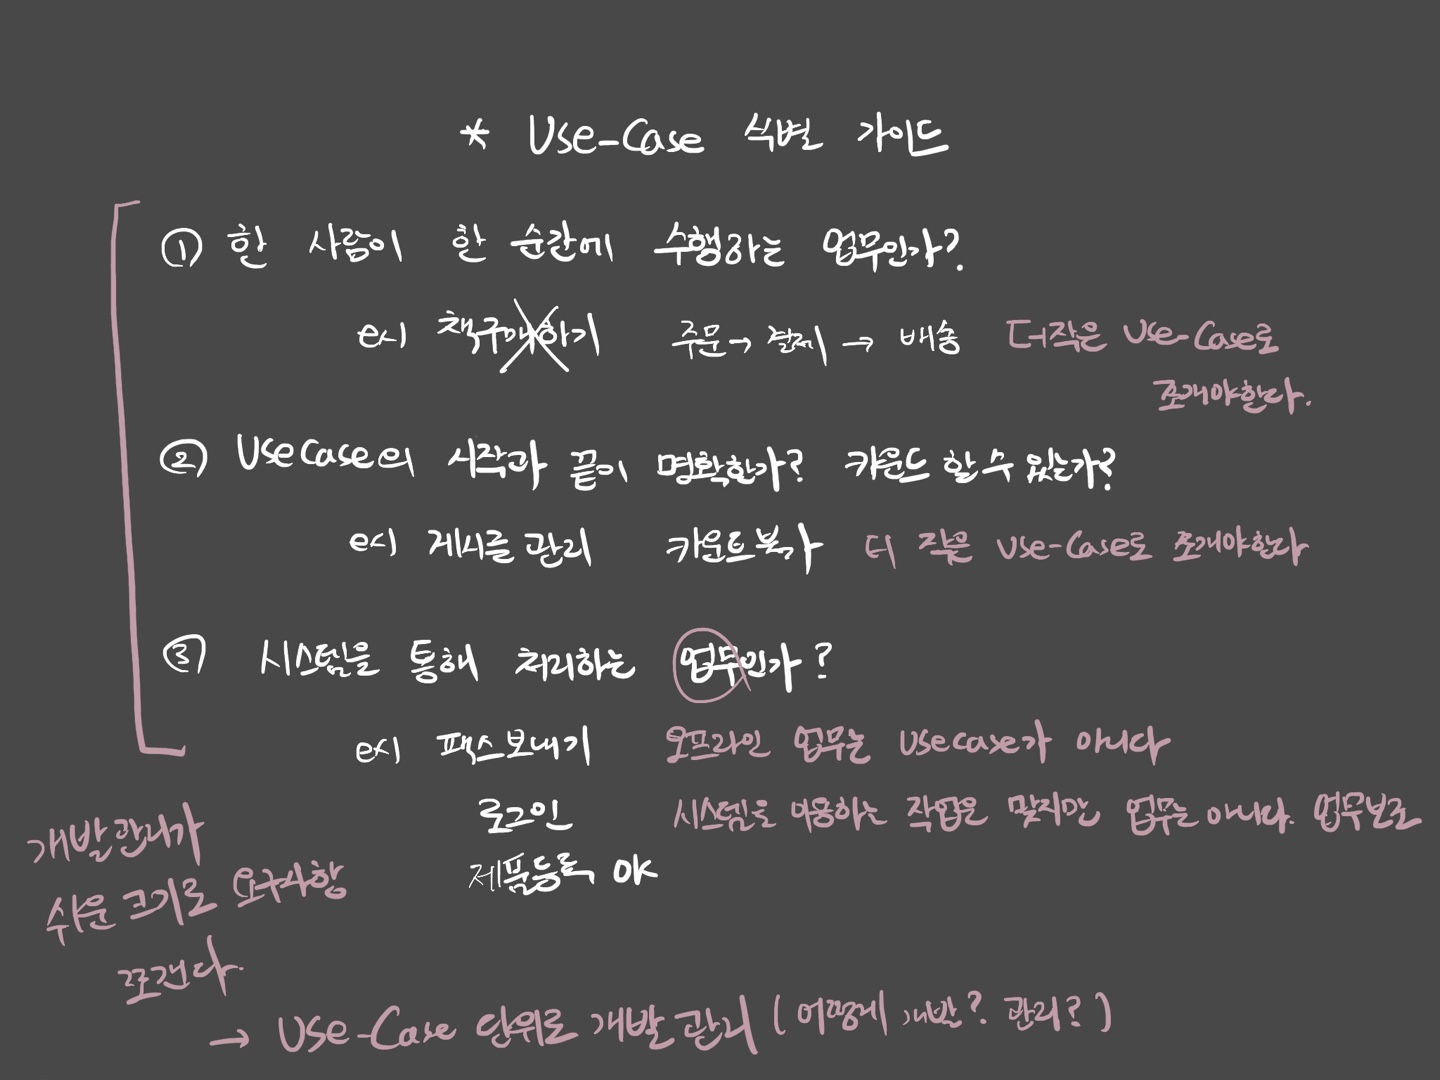 * Use-Case 식별 가이드
① 한 사람이 한 순간에 수행하는 업무인가?
ex) 책구매하기 주문 → 결제 → 배송 더작은 Use-Case로
쪼개야한다.
② Use Case의 시작과 끝이 명확한가? 카운드 할 수 있는가?
ex) 게시물 관리 카운트 불가 더 작은 Use-Case로 쪼개야한다
③ 시스템을 통해 처리하는 업무인가?
ex) 팩스보내기 오프라인 업무는 Usecase가 아니다
로그인 시스템을 이용하는 작업은 맞지만 업무는 아니다.
제품등록 OK
개발관리가
쉬운 크기로 요구사항
쪼갠다.
→ Use-Case 단위로 개발 관리 (어떻게 개발? 관리?)